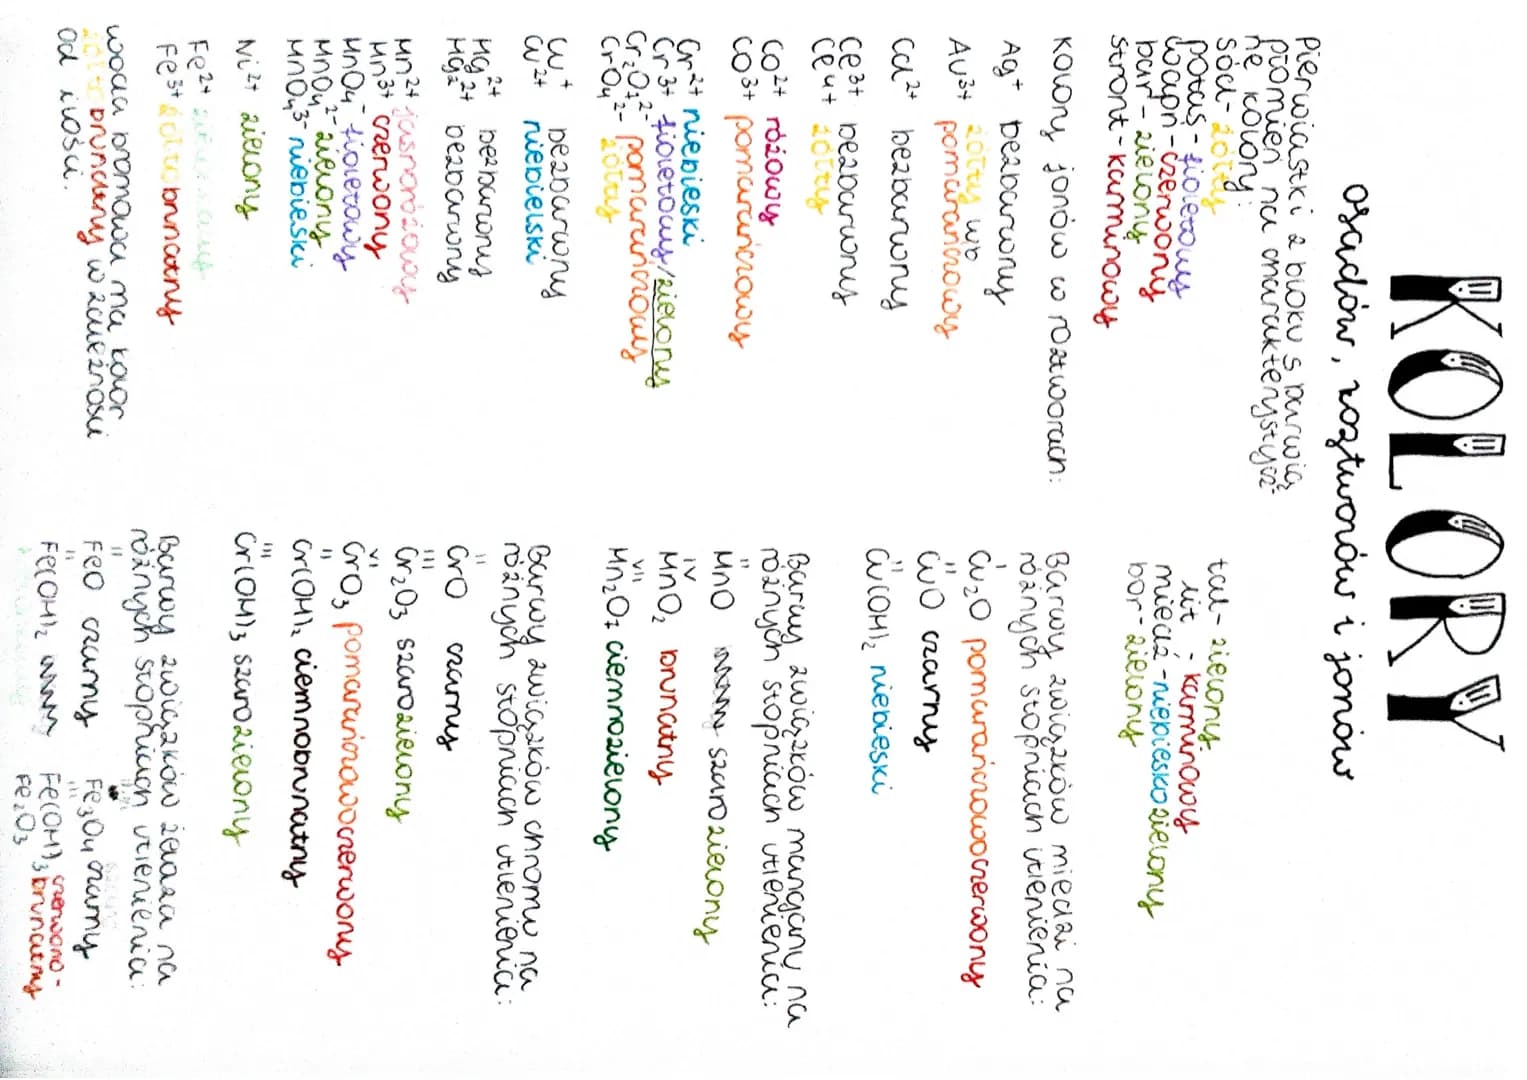 KOLORY
osadów, roztworów i jonów
Pierwiastki z bloku s barwią
płomień na charakterystycz-
ne kolory:
sód - żółty
potas - fioletowy
wapń - czerwony
bar - zielony
stront - karminowy
tal - zielony
lit - karminowy
miedź - niebieskozielony
bor - zielony
Kolory jonów w roztworach:
Ag⁺ bezbarwny
Au³⁺ żółty lub
pomarańczowy
Cd²⁺ bezbarwny
Ce³⁺ bezbarwny
Ce⁴⁺ żółty
Co²⁺ różowy
Co³⁺ pomarańczowy
Cr²⁺ niebieski
Cr³⁺ fioletowy/zielony
Cr₂O₇²⁻ pomarańczowy
CrO₄²⁻ żółty
Cu⁺ bezbarwny
Cu²⁺ niebielski
Mg²⁺ bezbarwny
Hg₂²⁺ bezbarwny
Mn²⁺ jasnoróżowy
Mn³⁺ czerwony
MnO₄⁻ fioletowy
MnO₄²⁻ zielony
MnO₄³⁻ niebieski
Ni²⁺ zielony
Fe²⁺
Fe³⁺ żółtobrunatny
woda bromowa ma kolor
żółtobrunatny w zależności
od ilości.
Barwy związków miedzi na
różnych stopniach utlenienia:
I
Cu₂O pomarańczowoczerwony
II
CuO czarny
II
Cu(OH)₂ niebieski
Barwy związków manganu na
różnych stopniach utlenienia:
II
MnO szarozielony
IV
MnO₂ brunatny
VII
Mn₂O₇ ciemnozielony
Barwy związków chromu na
różnych stopniach utlenienia:
II
CrO czarny
III
Cr₂O₃ szarozielony
VI
CrO₃ pomarańczowoczerwony
II
Cr(OH)₂ ciemnobrunatny
III
Cr(OH)₃ szarozielony
Barwy związków żelaza na
różnych stopniach utlenienia:
II
FeO czarny
Fe₃O₄ czarny
II
Fe(OH)₂
III
Fe(OH)₃ czerwono-
Fe₂O₃ brunatny